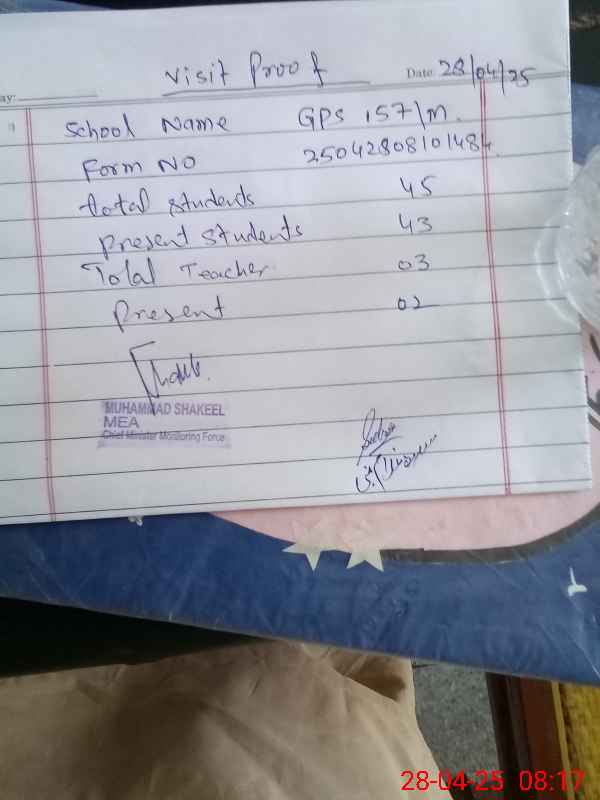 Visit Proof
Date: 28/04/25
ay:
School Name GPS 157/M.
Form NO 25042808101484
total students 45
present students 43
Total Teacher 03
Present 02
MUHAMMAD SHAKEEL
MEA
Chief Minister Monitoring Force
28-04-25 08:17